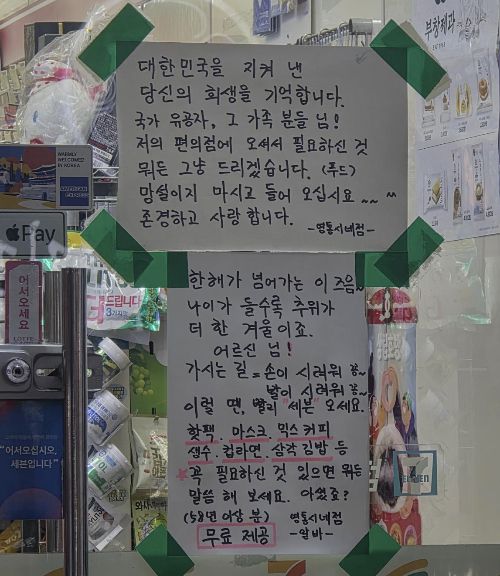 대한민국을 지켜 낸
당신의 희생을 기억합니다.
국가 유공자, 그 가족 분들 님!
저의 편의점에 오셔서 필요하신 것
뭐든 그냥 드리겠습니다. (푸드)
망설이지 마시고 들어 오십시요 ~~ ^^
존경하고 사랑합니다.
-영통시네점-
한해가 넘어가는 이 즈음~
나이가 들수록 추위가
더 한 겨울이죠.
어르신 님!
가시는 길 = 손이 시려워 꽁~
발이 시려워 꽁~
이럴 땐, 빨리 "세븐" 오세요.
핫팩. 마스크. 믹스 커피
생수. 컵라면. 삼각 김밥 등
꼭 필요하신 것 있으면 뭐든
말씀 해 보세요. 아셨죠?
(58년 이상 분) 영통시네점
무료 제공 -알바-
부창제과
WARMLY
WELCOMED
IN KOREA
AMERICAN
EXPRESS
Pay
어서오세요
드립니다
"어서오십시오,
세븐입니다"
ELEVEN